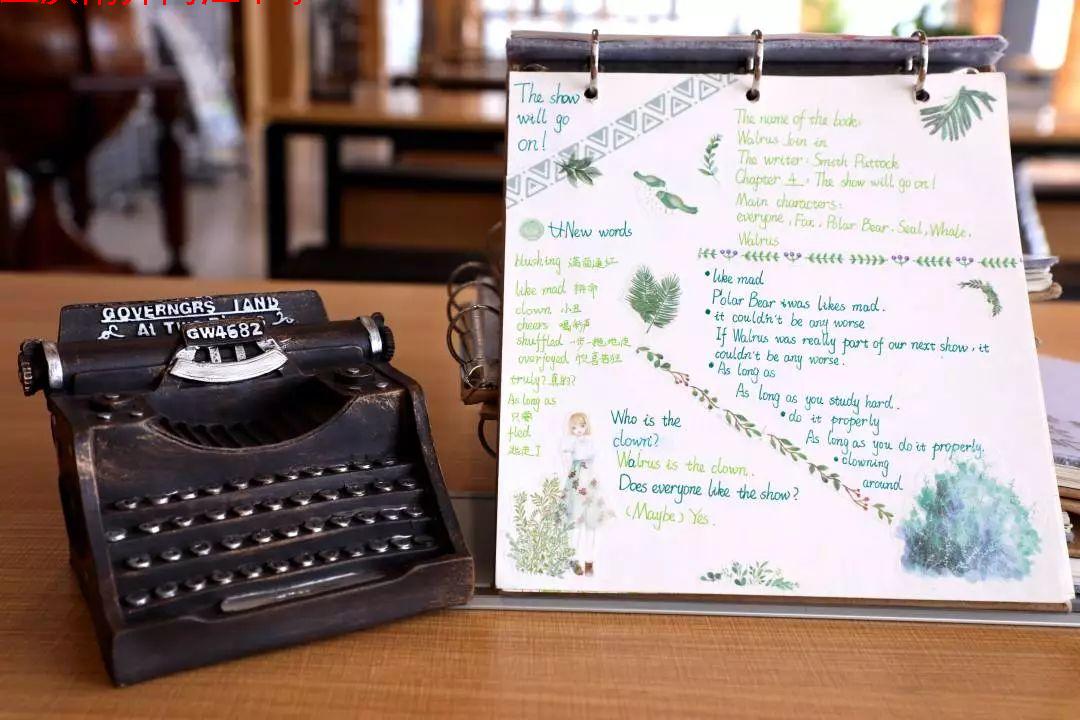 GOVERNGRS LAND
GW4682
The show
will go
on!
The name of the book:
Walrus Join in
The writer: Smith Puttock
Chapter 4: The show will go on!
Main characters:
everyone, Fox, Polar Bear, Seal, Whale,
Walrus
New words
blushing 满面通红
like mad 拼命
clown 小丑
cheers 喝彩声
shuffled 一步一拖地走
overjoyed 欣喜若狂
truly? 真的?
As long as
只要
fled
逃走了
• like mad
Polar Bear was likes mad.
• it couldn't be any worse
If Walrus was really part of our next show, it
couldn't be any worse.
• As long as
As long as you study hard.
• do it properly
As long as you do it properly.
• clowning
around
Who is the
clown?
Walrus is the clown.
Does everyone like the show?
(Maybe) Yes.